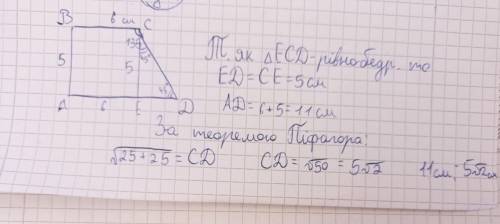 B 6 см C
135
45
5 5
45
A 6 E D
Т.як ΔECD-рівнобедр. то
ED=CE=5см
AD=6+5=11см
За теоремою Пифагора:
√25+25 = CD CD=√50 = 5√2 11см; 5√2см